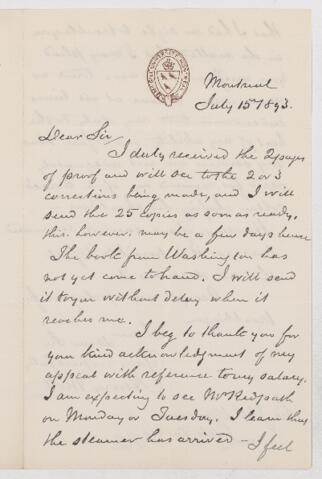 Montreal
July 15th 1893.
Dear Sir,
I duly received the 2 pages
of proof and will see to the 2 or 3
corrections being made, and I will
send the 25 copies as soon as ready,
this, however, may be a few days hence
The book from Washington has
not yet come to hand. I will send
it to you without delay when it
reaches me.
I beg to thank you for
your kind acknowledgment of my
appeal with reference to my salary.
I am expecting to see Mr Redpath
on Monday or Tuesday. I learn that
the steamer has arrived - I feel